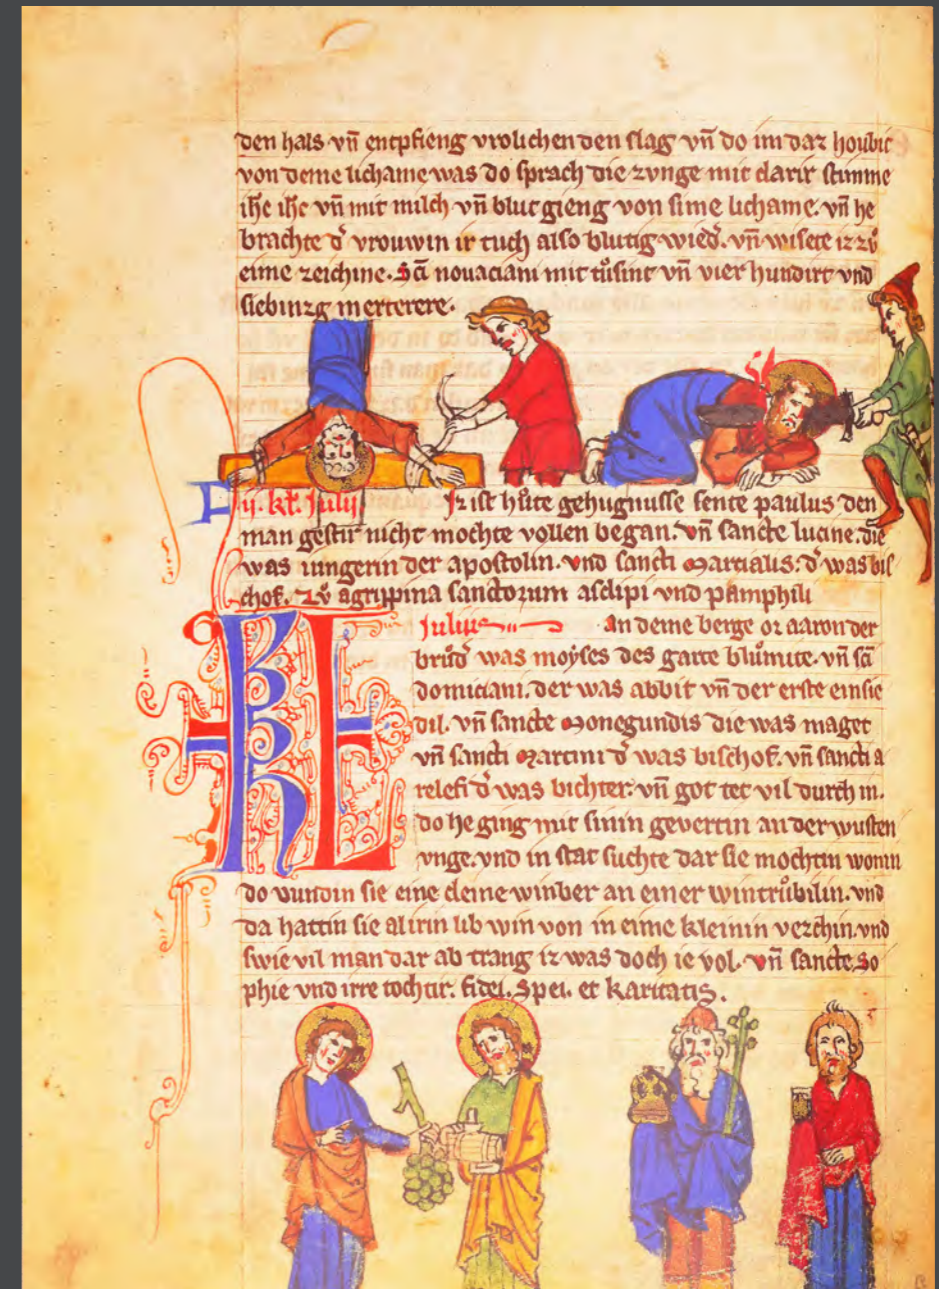 den hals vn̄ entpfieng vrolichen den slag vn̄ do im daz houbit
von deme lichame was do sprach die zvnge mit clarir stimme
ihc ihc vn̄ mit milch vn̄ blut gieng von sime lichame. vn̄ he
brachte d᷑ vrouwin ir tuch also blutig wied᷑. vn̄ wisete iz zv̊
eime zeichine. Sc̄i nouaciani mit tůsint vn̄ vier hundirt vnd
siebinzg merterere.
ij. kl̄. Julij Jz ist hůte gehugnusse sente paulus den
man gestir nicht mochte vollen began. vn̄ sancte lucine. die
was iungerin der apostolin. vnd sancti Marcialis: d᷑ was bis
chof. Zv̊ agrippina sanctorum asclipi vnd pamphili
KL Julius an deme berge or aaron der
brůd᷑ was moyses des garte blůmite. vn̄ sc̄i
domiciani. der was abbit vn̄ der erste einsie
dil. vn̄ sancte Monegundis die was maget
vn̄ sancti Martini d᷑ was bischof. vn̄ sancti a
relefi d᷑ was bichter. vn̄ got tet vil durch in.
do he ging mit sinin gevertin an der wusten
vnge. vnd in stat suchte dar sie mochtin wonin
do vundin sie eine cleine winber an einer wintrůbilin. vnd
da hattin sie al irin lib win von in eime kleinin vezchin. vnd
swie vil man dar ab trang iz was doch ie vol. vn̄ sancte so
phie vnd irre tochtir. fidei. Spei. et Karitatis.